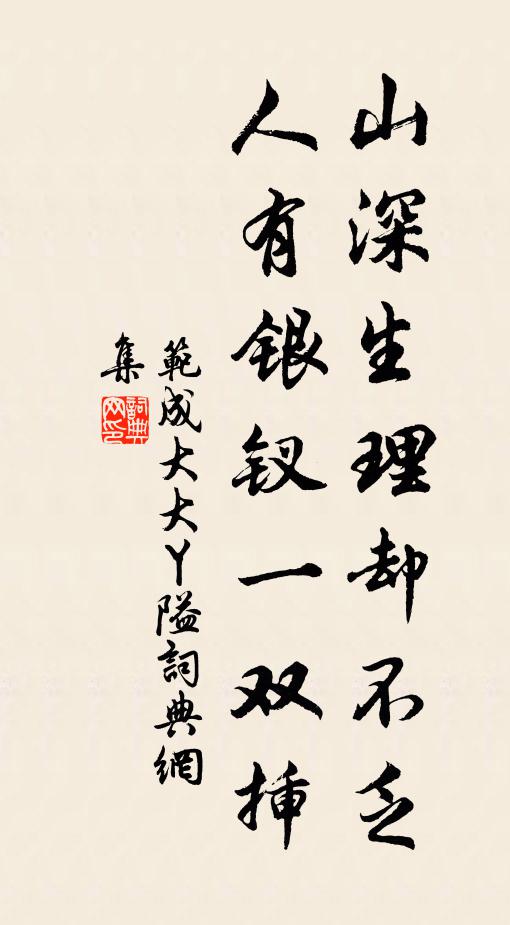 山深生理却不乏
人有银钗一双插
範成大大丫隘詞典網
集
詞典
网印